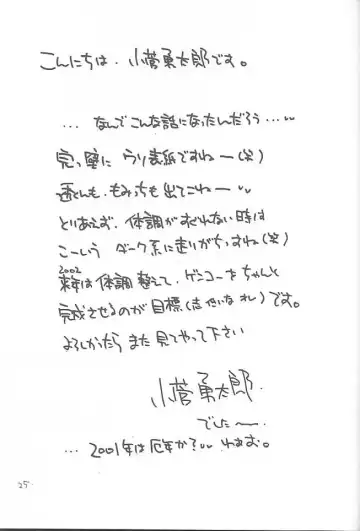 こんにちは、小菅勇太郎です。
... なんでこんな話になったんだろう...
完っ璧にウソ表紙ですねー(笑)
も、もみっちも出てこねー
とりあえず、体調がすぐれない時は
こーいう ダーク系に走りがちっすね(笑)
2002
来年は体調整えて、ゲンコーをちゃんと
完成させるのが目標(志低いな オレ)です。
よろしかったら また 見てやって下さい
小菅勇太郎.
でしたー.
... 2001年は厄年か?
25